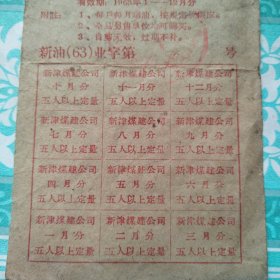 附注：1、每户每月
2、
3、自撕无效，过期不补。
新油(63)业字第 号
新津煤建公司 新津煤建公司 新津煤建公司
十月份 十一月份 十二月份
五人以上定量 五人以上定量 五人以上定量
新津煤建公司 新津煤建公司 新津煤建公司
七月份 八月份 九月份
五人以上定量 五人以上定量 五人以上定量
新津煤建公司 新津煤建公司 新津煤建公司
四月份 五月份 六月份
五人以上定量 五人以上定量 五人以上定量
新津煤建公司 新津煤建公司 新津煤建公司
一月份 二月份 三月份
五人以上定量 五人以上定量 五人以上定量